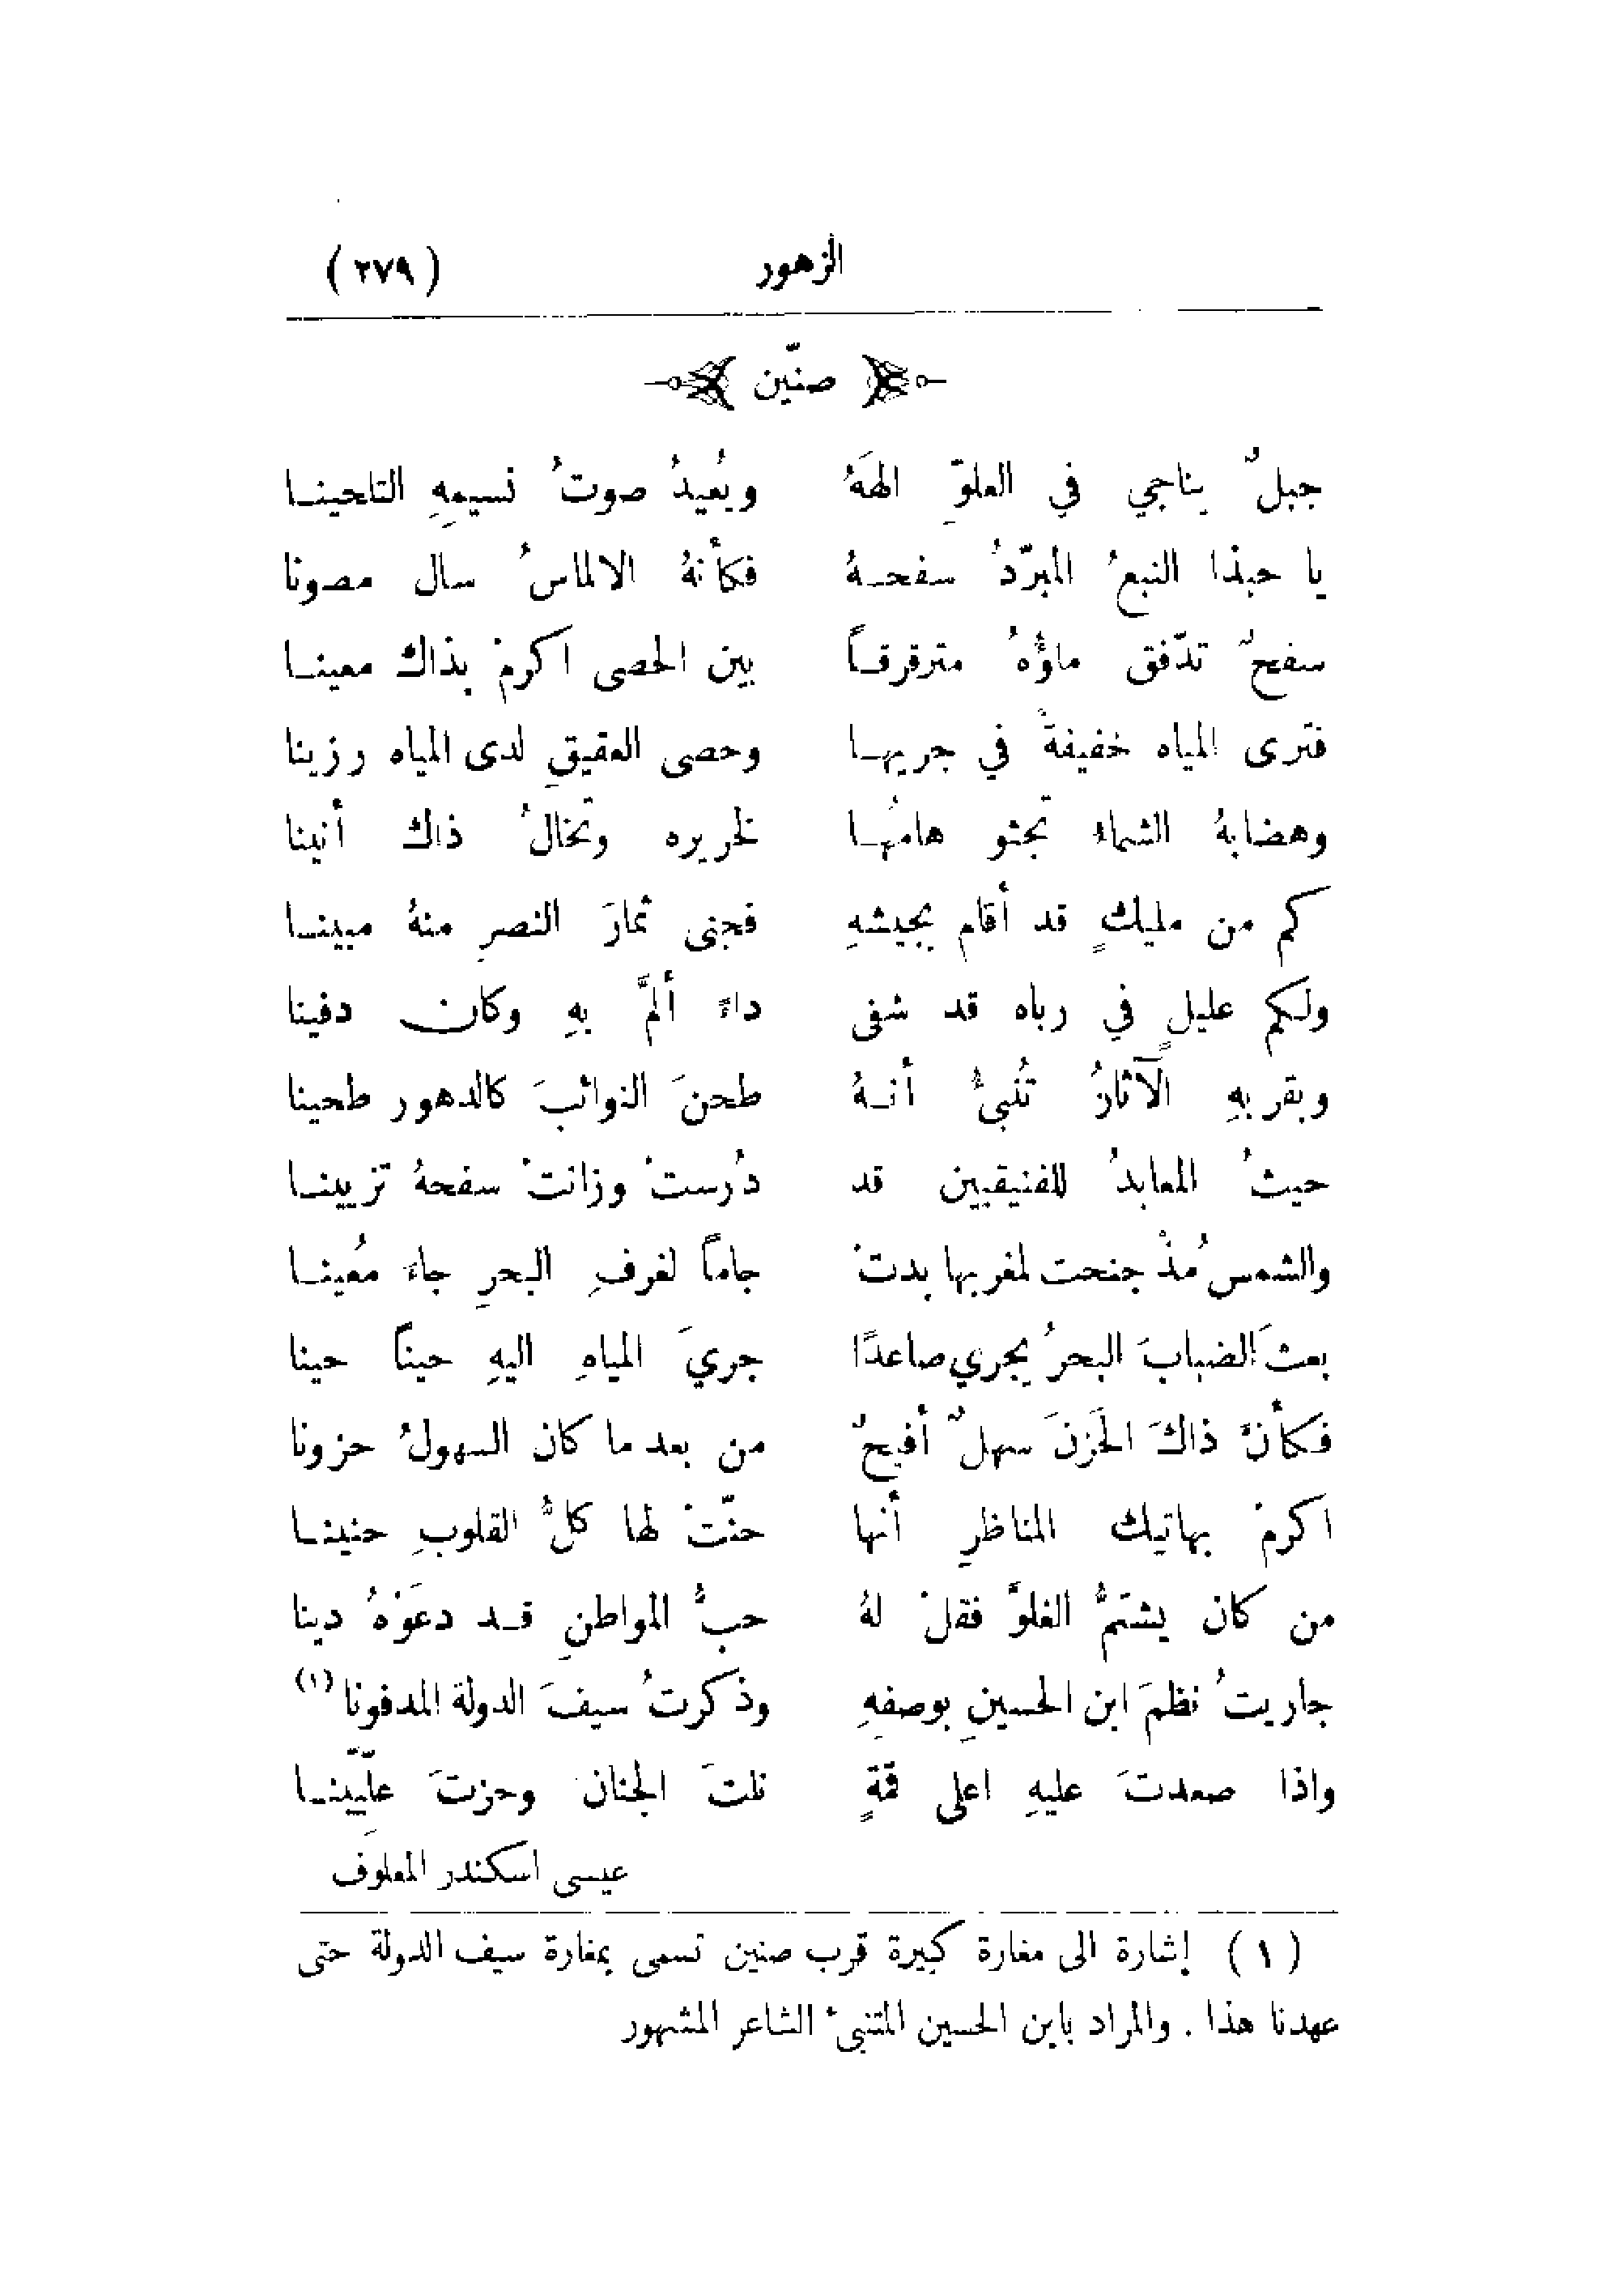 الزهور (٢٧٩)
صنّين
جبلٌ يناجي في العلوِّ الهَهُ ويُعيدُ صوتُ نسيمِهِ التلحينا
يا حبذا النبعُ المبرّدُ سفحهُ فكأنهُ الالماسُ سال مصونا
سفحٌ تدّفق ماؤُهُ مترقرقاً بين الحصى اكرمْ بذاك معينا
فترى المياه خفيفةً في جريها وحصى العقيقِ لدى المياه رزينا
وهضابهُ الشماء تجثو هامُها لخريره وتخالُ ذاك أنينا
كم من مليكٍ قد أقام بجيشهِ فجنى ثمارَ النصرِ منهُ مبينا
ولكم عليلٍ في رباه قد شفى داءً ألمَّ بهِ وكان دفينا
وبقربهِ الآثارُ تُنبىُّ أنهُ طحنَ النوائبَ كالدهور طحينا
حيثُ المعابدُ للفنيقيين قد دُرستْ وزانتْ سفحهُ تزيينا
والشمس مُذْ جنحت لمغربها بدتْ جاماً لغرفِ البحرِ جاءَ مُعينا
بعثَ الضبابَ البحرُ يجري صاعدًا جريَ المياهِ اليهِ حيناً حينا
فكأنَّ ذاكَ الحَزنَ سهلٌ أفيحٌ من بعد ما كان السهولُ حزونا
اكرمْ بهاتيك المناظرِ أنها حنّتْ لها كلُّ القلوبِ حنينا
من كان يشتمُّ الغلوَّ فقلْ لهُ حبُّ المواطنِ قد دعَوْهُ دينا
جاريتُ نظمَ ابن الحسينِ بوصفهِ وذكرتُ سيفَ الدولة المدفونا (١)
واذا صعدتَ عليهِ اعلى قمةٍ نلتَ الجنانَ وحزتَ علّيّينا
عيسى اسكندر المعلوف
(١) إشارة الى مغارة كبيرة قرب صنين تسمى بمغارة سيف الدولة حتى
عهدنا هذا . والمراد بابن الحسين المتنبىء الشاعر المشهور